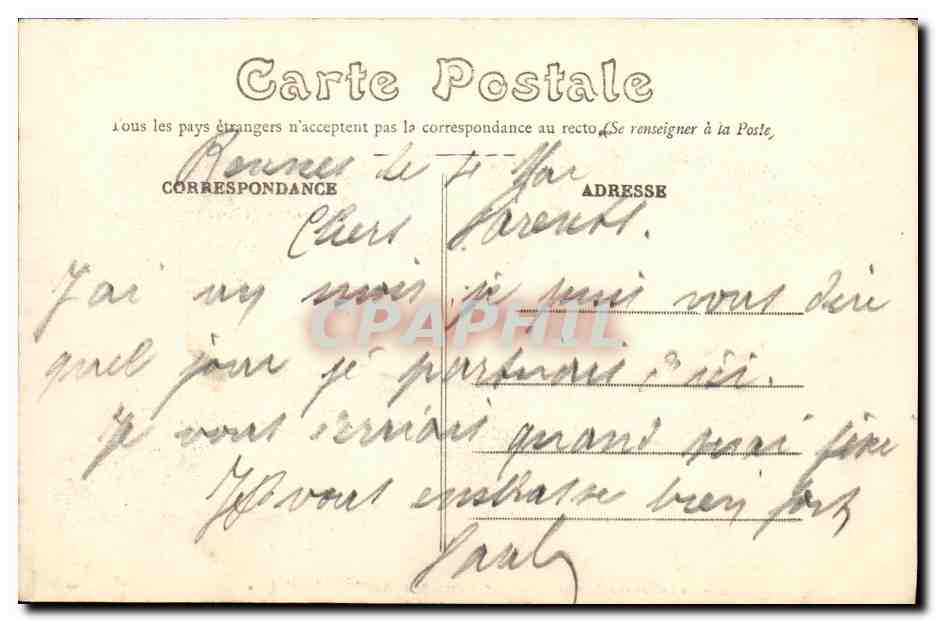 Carte Postale
Tous les pays étrangers n'acceptent pas la correspondance au recto (Se renseigner à la Poste)
Rennes le 4 Mai
CORRESPONDANCE ADRESSE
Chers Parents.
J'ai vu mois je puis vous dire
quel jour je partirais d'ici.
Je vous écrirais quand
Je vous embrasse bien fort
Paul
CPAPHIL